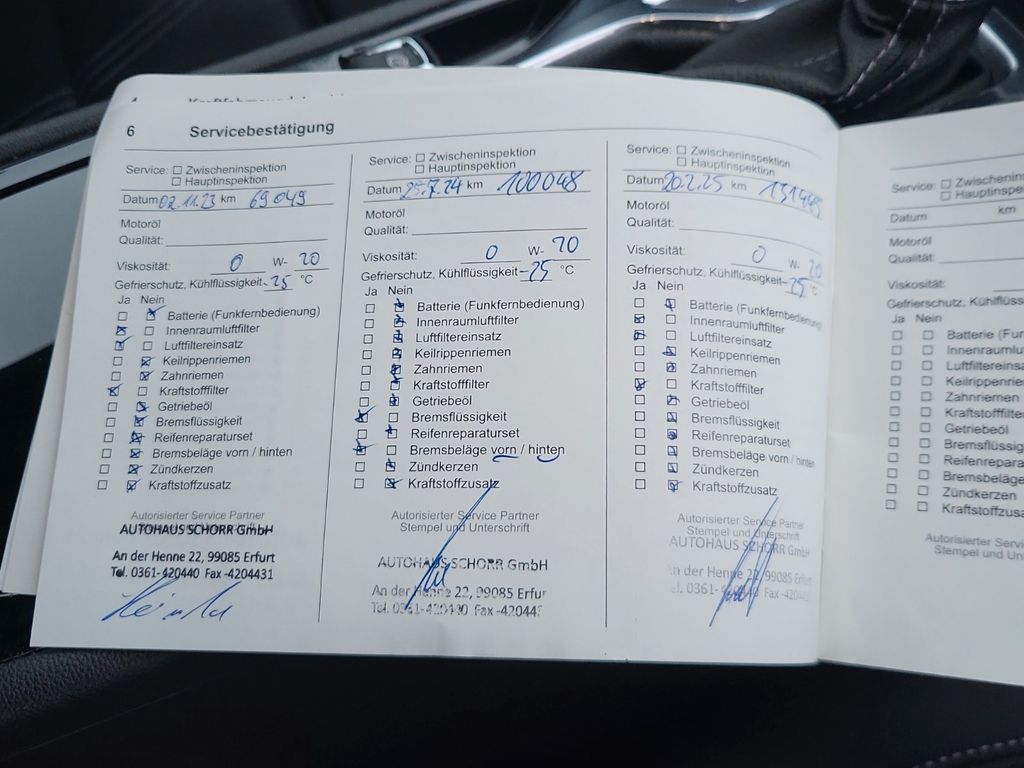 6 Servicebestätigung
Service: ☐ Zwischeninspektion
☐ Hauptinspektion
Datum 02.11.23 km 69049
Motoröl
Qualität:
Viskosität: 0 W- 20
Gefrierschutz, Kühlflüssigkeit -25 °C
Ja Nein
Batterie (Funkfernbedienung)
Innenraumluftfilter
Luftfiltereinsatz
Keilrippenriemen
Zahnriemen
Kraftstofffilter
Getriebeöl
Bremsflüssigkeit
Reifenreparaturset
Bremsbeläge vorn / hinten
Zündkerzen
Kraftstoffzusatz
Autorisierter Service Partner
AUTOHAUS SCHORR GmbH
An der Henne 22, 99085 Erfurt
Tel. 0361-420440 Fax -4204431
Service: ☐ Zwischeninspektion
☐ Hauptinspektion
Datum 25.7.24 km 100048
Motoröl
Qualität:
Viskosität: 0 W- 20
Gefrierschutz, Kühlflüssigkeit -25 °C
Ja Nein
Batterie (Funkfernbedienung)
Innenraumluftfilter
Luftfiltereinsatz
Keilrippenriemen
Zahnriemen
Kraftstofffilter
Getriebeöl
Bremsflüssigkeit
Reifenreparaturset
Bremsbeläge vorn / hinten
Zündkerzen
Kraftstoffzusatz
Autorisierter Service Partner
Stempel und Unterschrift
AUTOHAUS SCHORR GmbH
An der Henne 22, 99085 Erfur
Tel. 0361-420440 Fax -42044
Service: ☐ Zwischeninspektion
☐ Hauptinspektion
Datum 20.2.25 km
Motoröl
Qualität:
Viskosität: 0 W- 20
Gefrierschutz, Kühlflüssigkeit -25 °C
Ja Nein
Batterie (Funkfernbedienung
Innenraumluftfilter
Luftfiltereinsatz
Keilrippenriemen
Zahnriemen
Kraftstofffilter
Getriebeöl
Bremsflüssigkeit
Reifenreparaturset
Bremsbeläge vorn / hinten
Zündkerzen
Kraftstoffzusatz
Autorisierter Service Partner
Stempel und Unterschrift
AUTOHAUS SCHORR GmbH
An der Henne 22, 99085 Erfurt
Service: ☐ Zwischeninspe
☐ Hauptinspekt
Datum km
Motoröl
Qualität:
Viskosität:
Gefrierschutz, Kühlflüss
Ja Nein
Batterie (Fun
Innenraumlu
Luftfiltereinsa
Keilrippenrie
Zahnriemen
Kraftstofffilte
Getriebeöl
Bremsflüssig
Reifenrepara
Bremsbeläge
Zündkerzen
Kraftstoffzusa
Autorisierter Servi
Stempel und Un